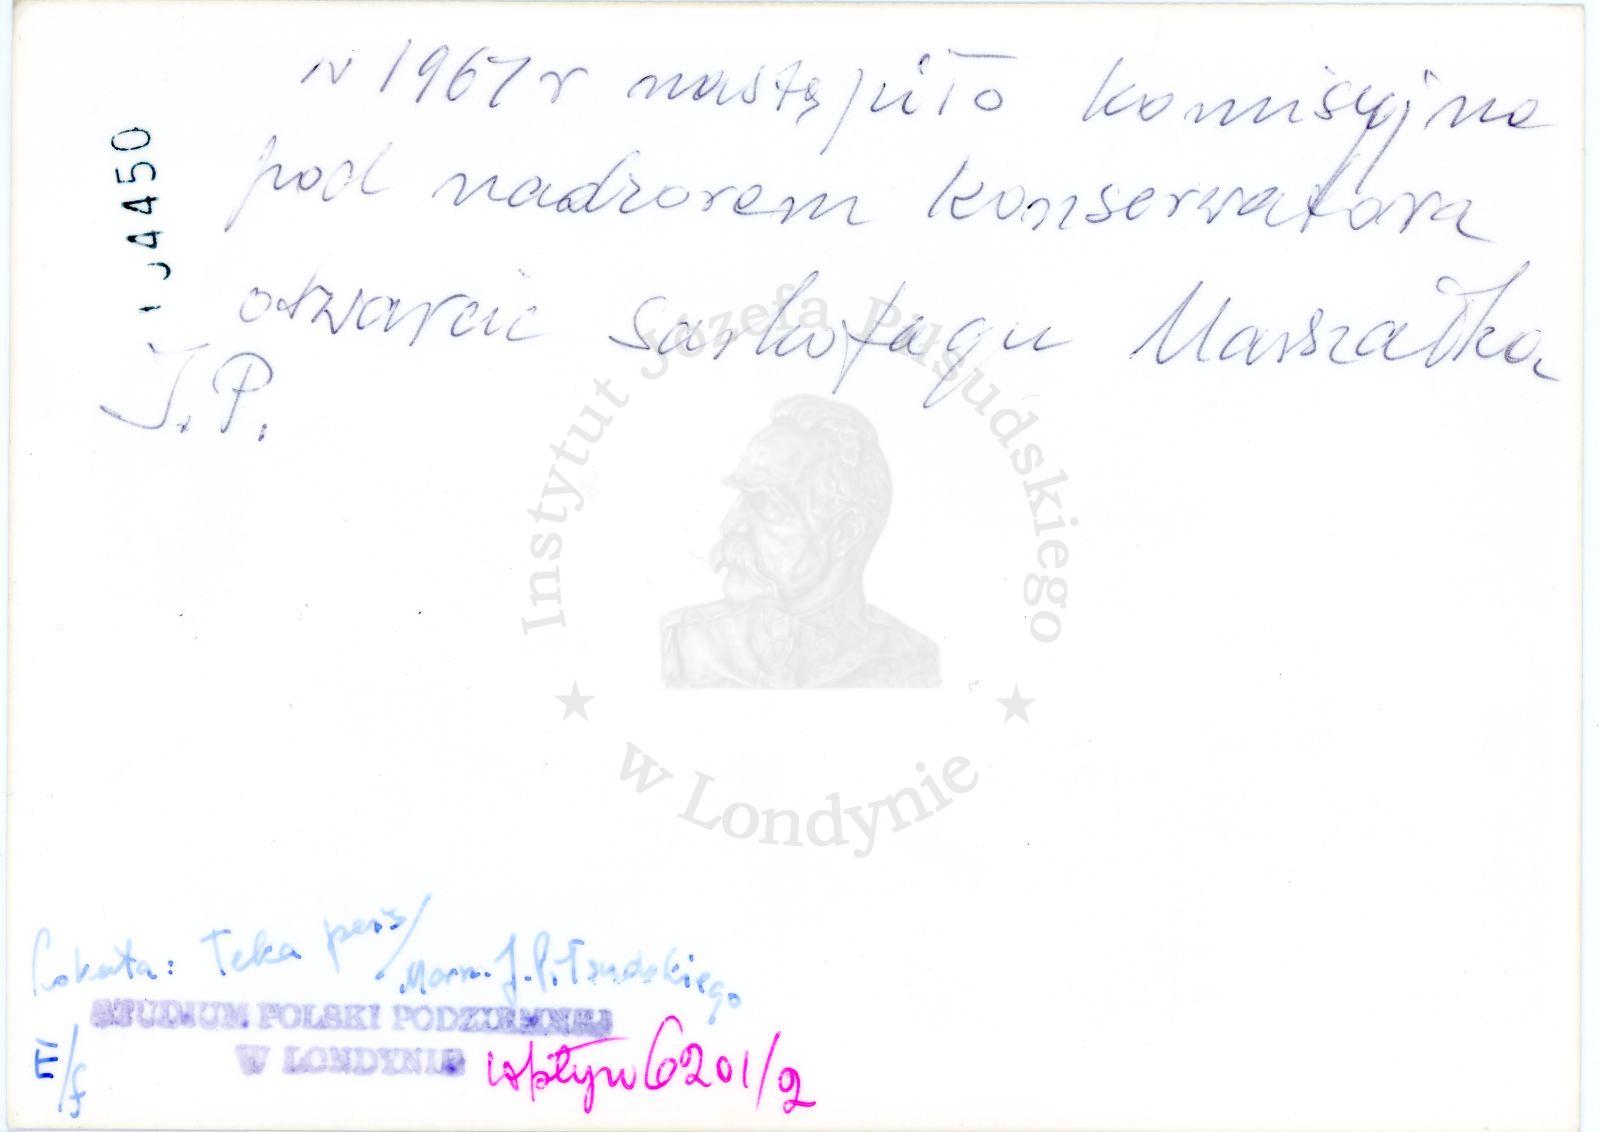 w 1967 r nastąpiło komisyjne
pod nadzorem konserwatora
otwarcie sarkofagu Marszałka
J.P.
4450
Instytut Józefa Piłsudskiego
w Londynie
Teka pers/
Marsz. J. Piłsudskiego
STUDIUM POLSKI PODZIEMNEJ
W LONDYNIE
wpływ 6201/2
III/f